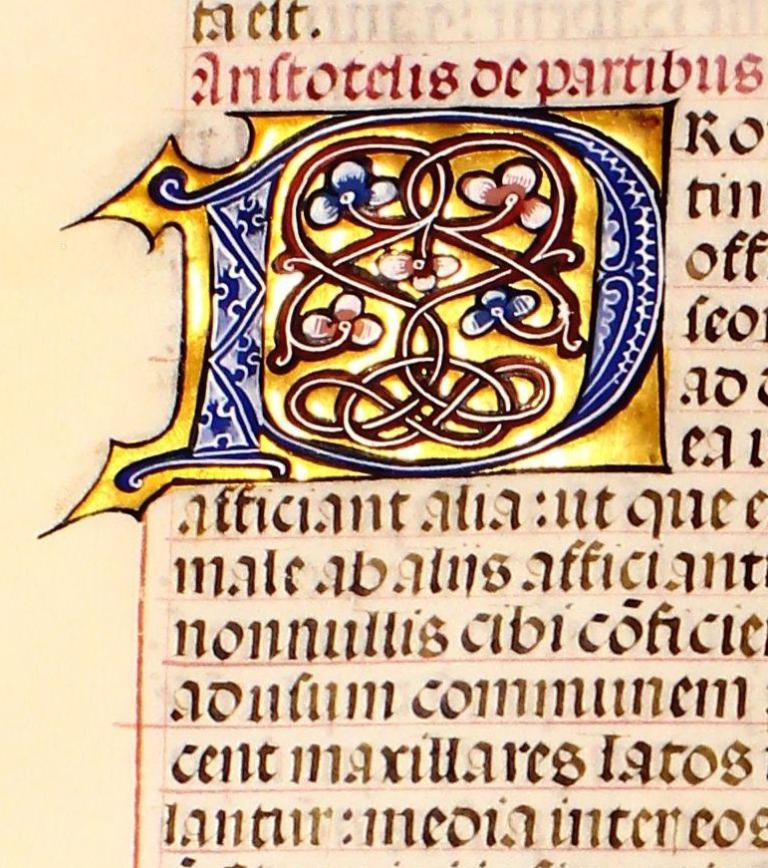 ta est.
Aristotelis de partibus
P
RO
tin
off
seor
ad
ea
afficiant alia : ut que e
male ab aliis afficiant
nonnullis cibi cōficie
ad usum communem
cent maxillares latos
lantur : media inter eos